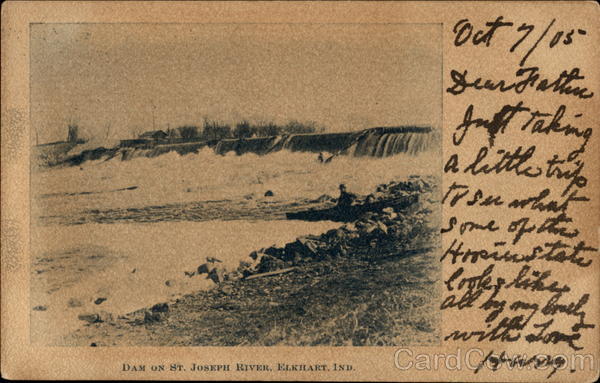 Oct 7/05
Dear Father
Just taking
a little trip
to see what
some of the
Hoosier state
looks like
All by my lonely
with Love
Harry
DAM ON ST. JOSEPH RIVER, ELKHART, IND.
CardCow.com